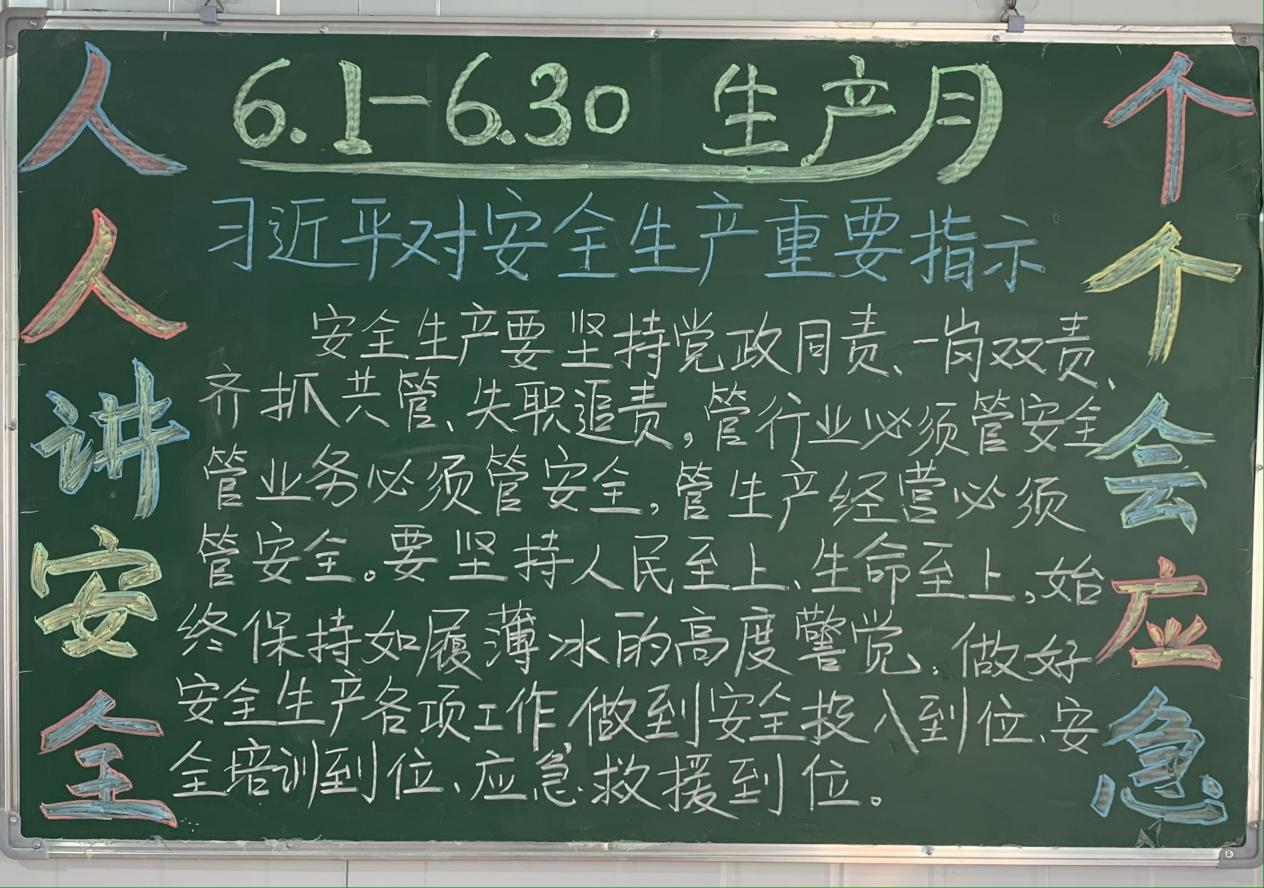 6.1-6.30 生产月
习近平对安全生产重要指示
安全生产要坚持党政同责、一岗双责、
齐抓共管、失职追责,管行业必须管安全
管业务必须管安全,管生产经营必须
管安全。要坚持人民至上、生命至上,始
终保持如履薄冰的高度警觉,做好
安全生产各项工作,做到安全投入到位、安
全培训到位、应急救援到位。
人人讲安全
个个会应急